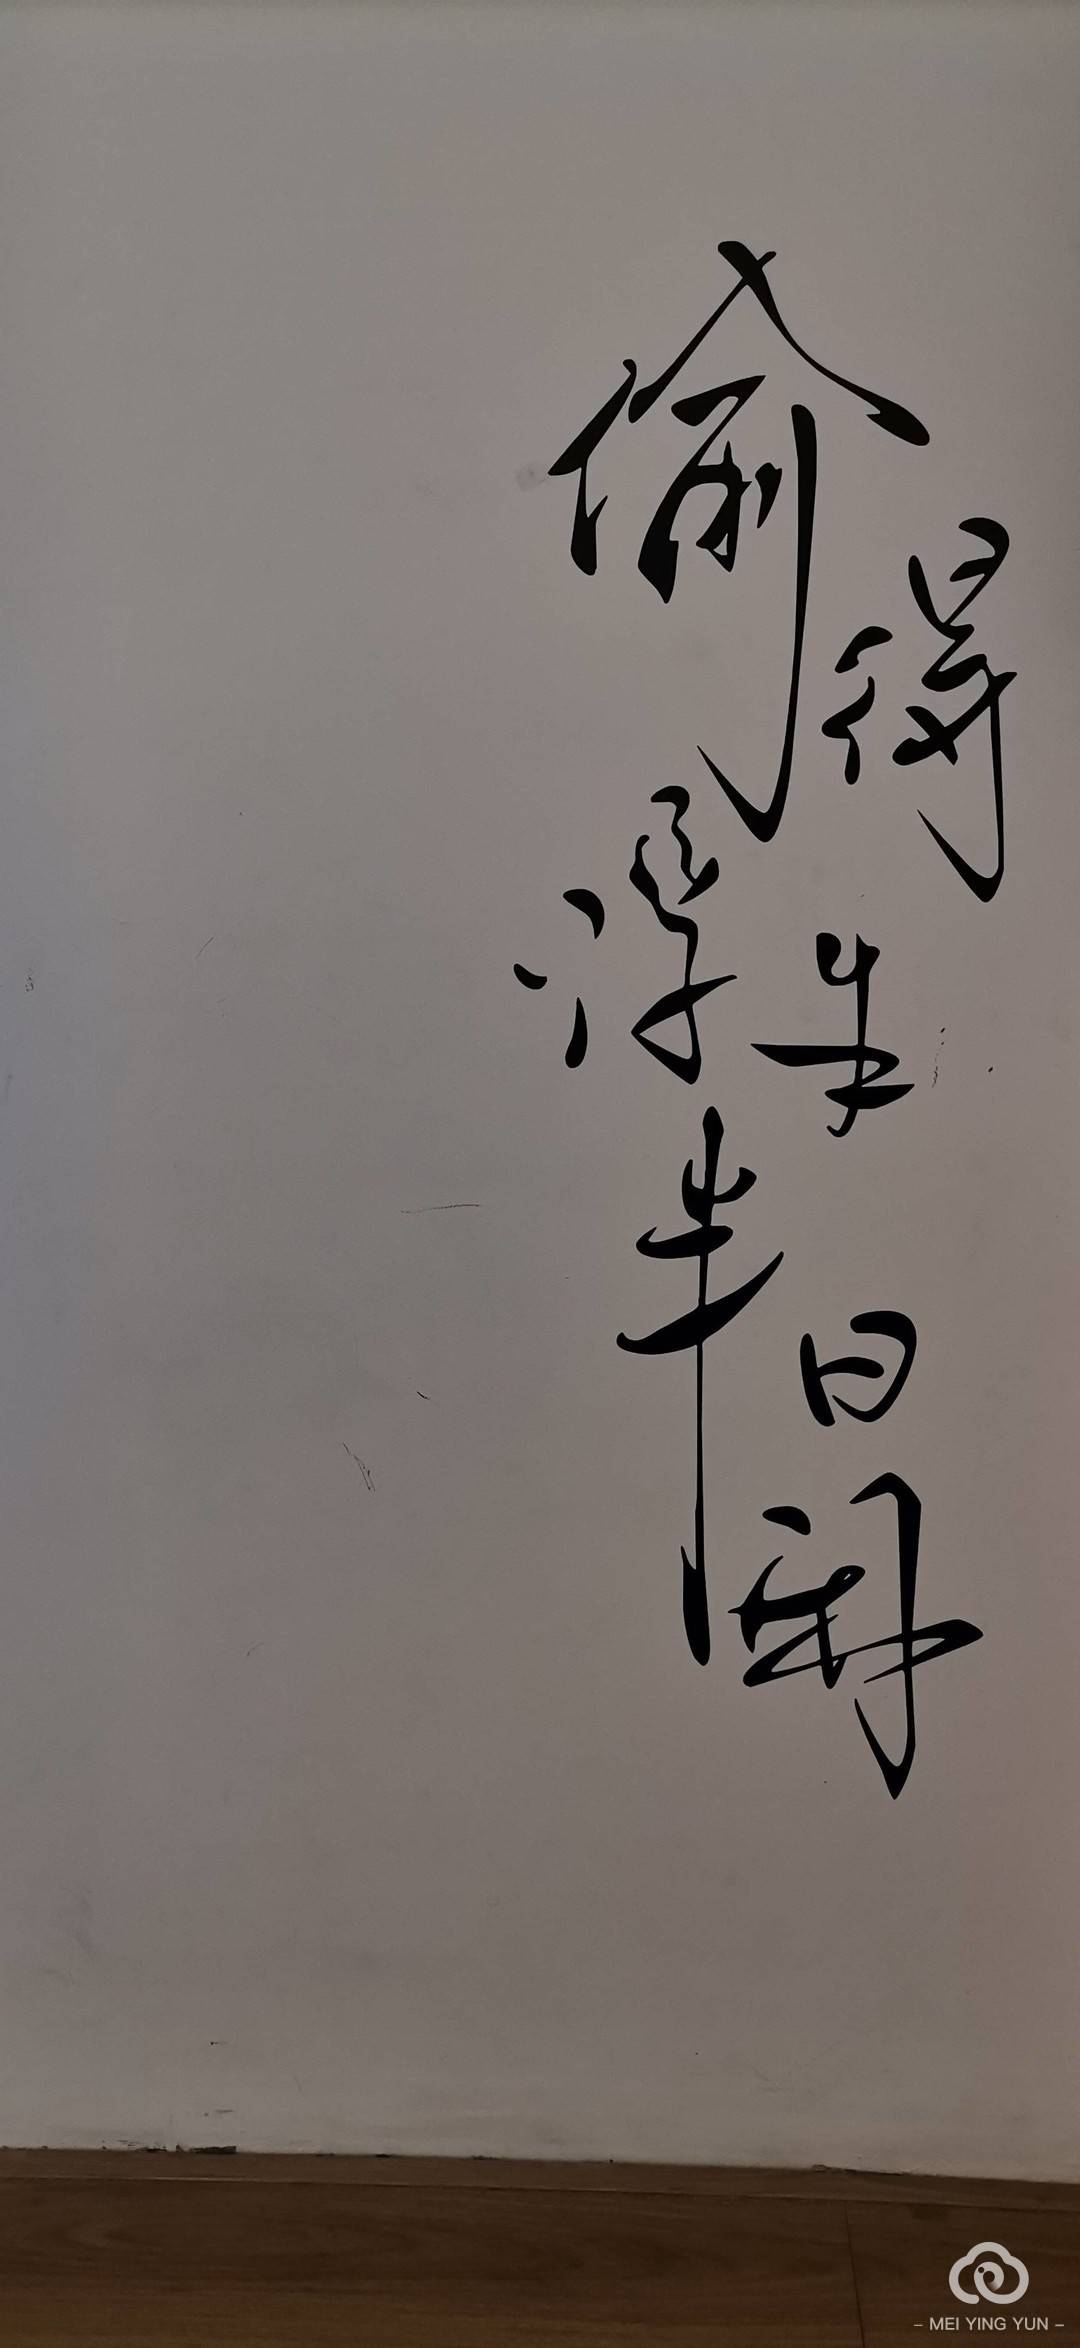 偷得浮生半日闲
– MEI YING YUN –